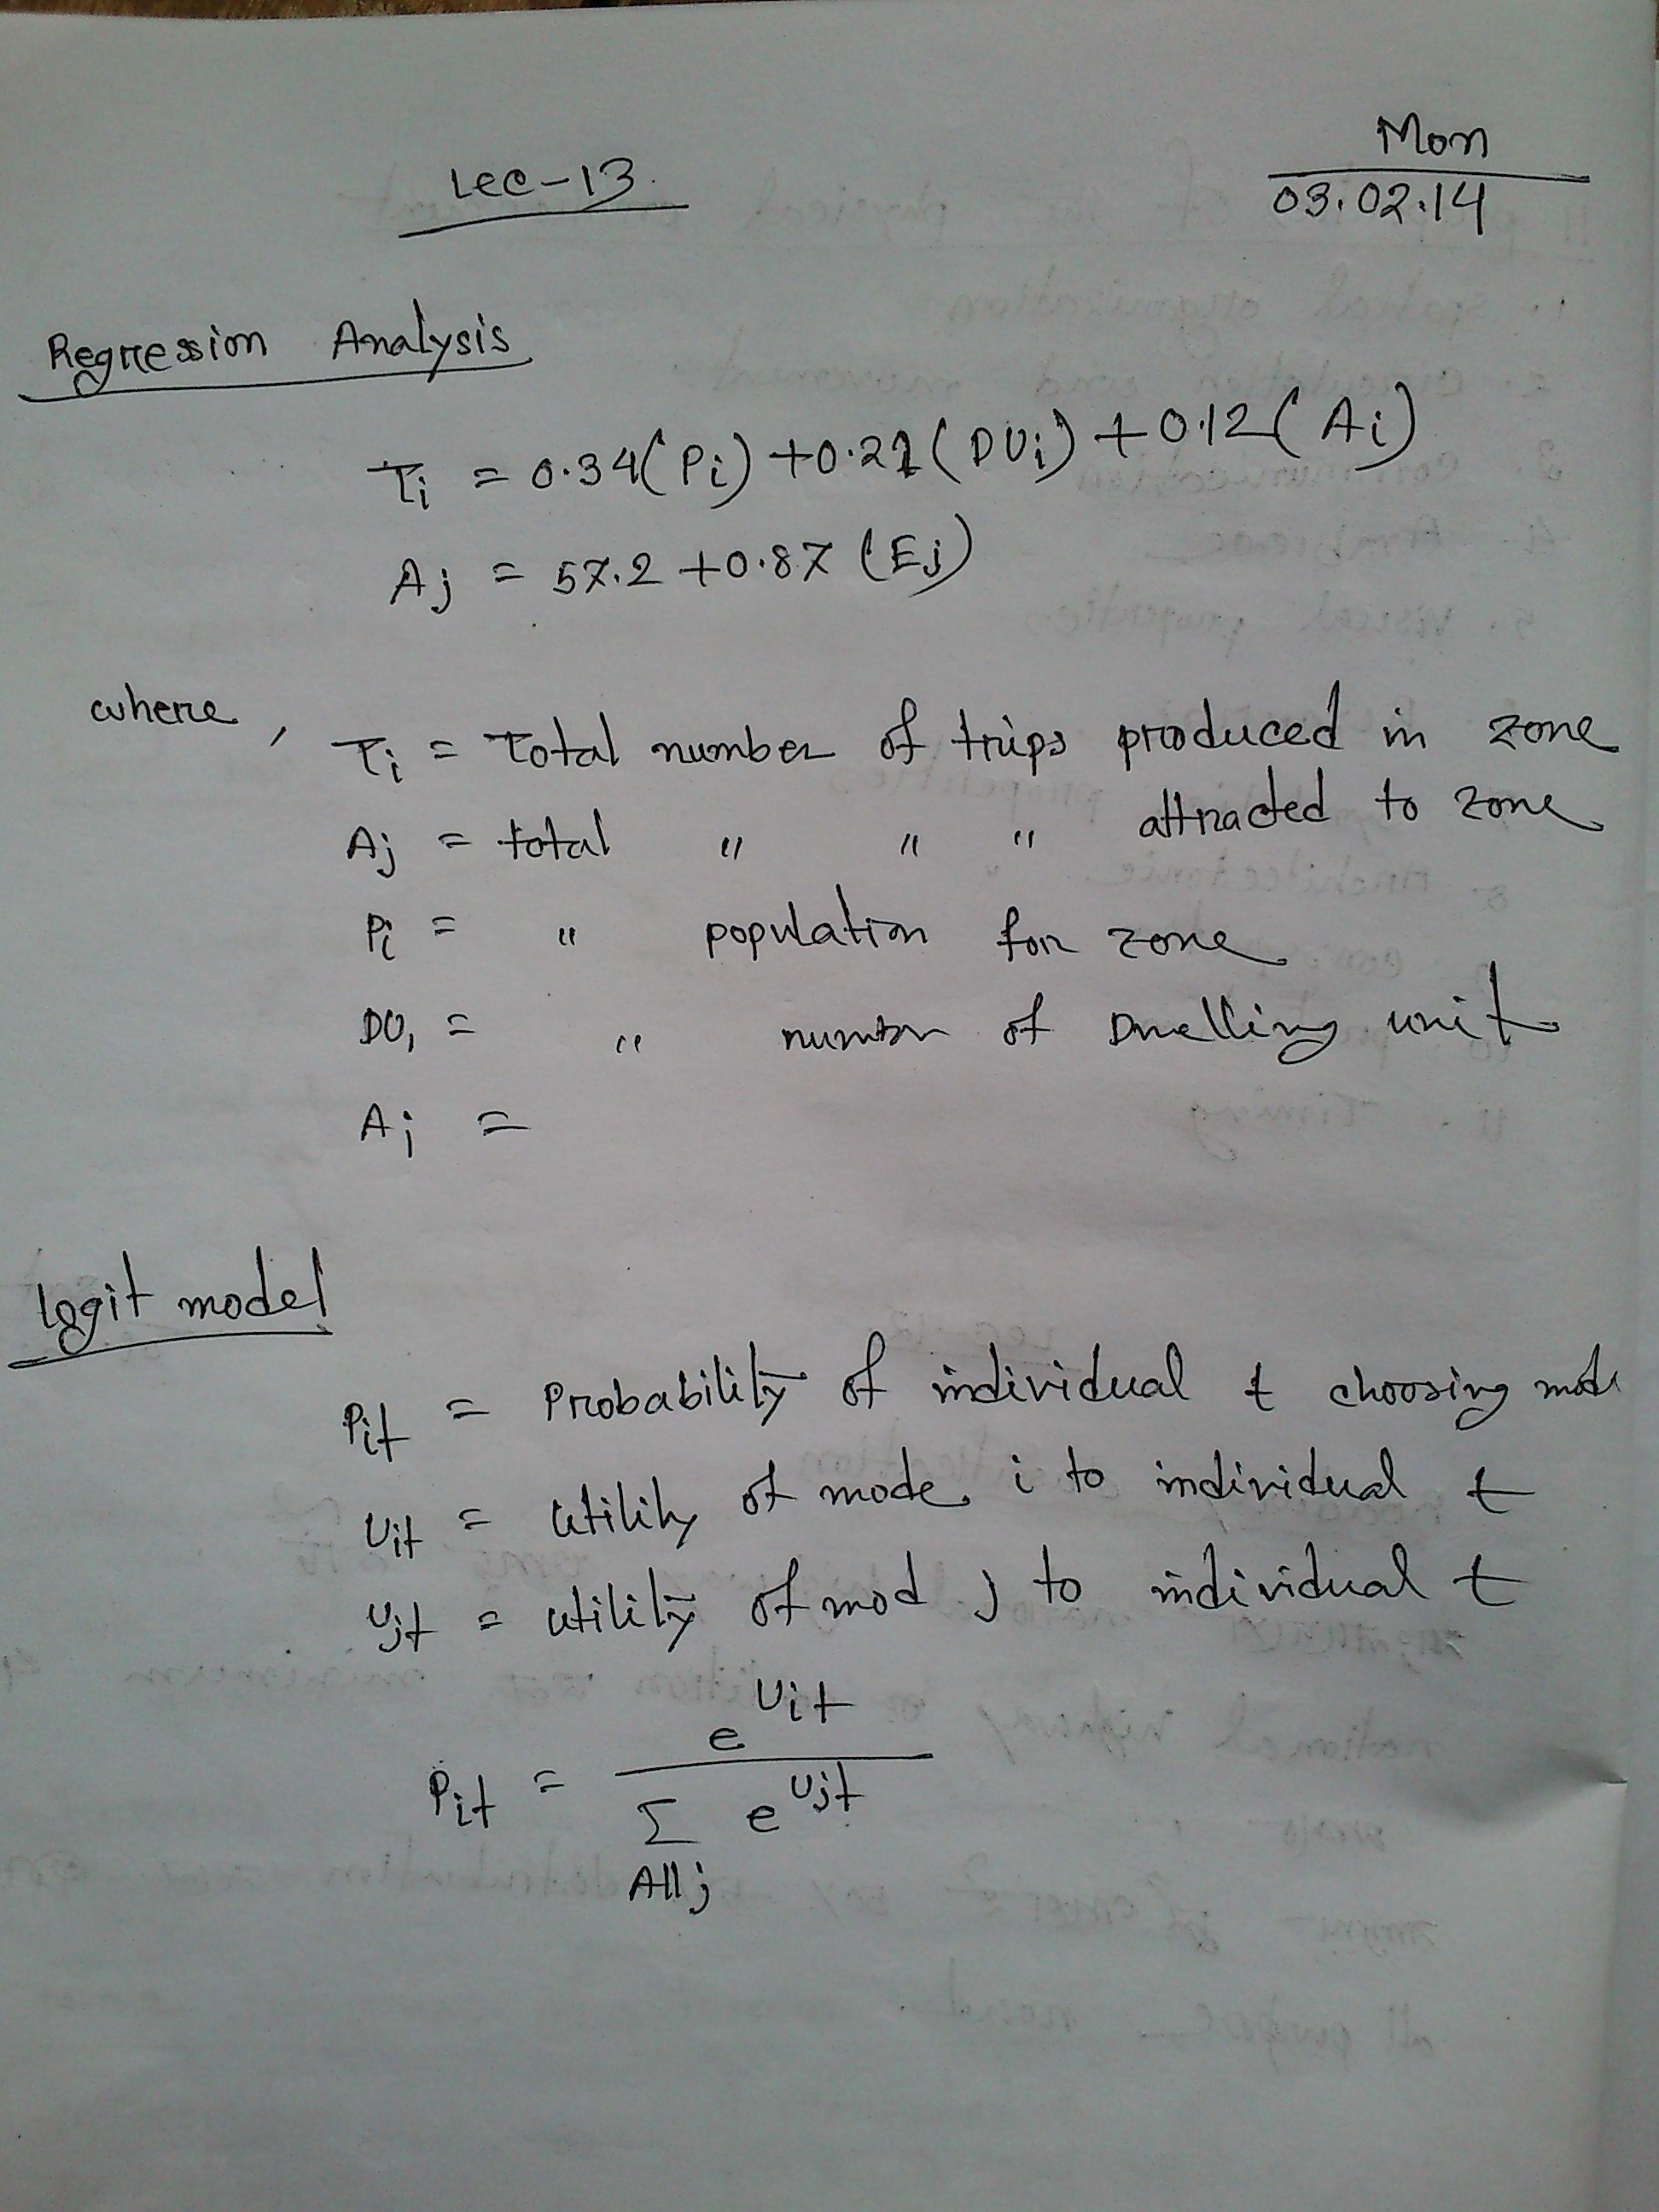 Lec-13.
Mon
03.02.14
Regression Analysis
Ti = 0.34(Pi) +0.21(DUi) +0.12(Ai)
Aj = 57.2 +0.87 (Ej)
where, Ti = Total number of trips produced in zone
Aj = total " " " attracted to zone
Pi = " population for zone
DUi = " number of Dwelling unit
Ai =
Logit model
Pit = Probability of individual t choosing mode
Uit = utility of mode i to individual t
Ujt = utility of mod j to individual t
Pit = e^Uit / Σ e^Ujt
All j